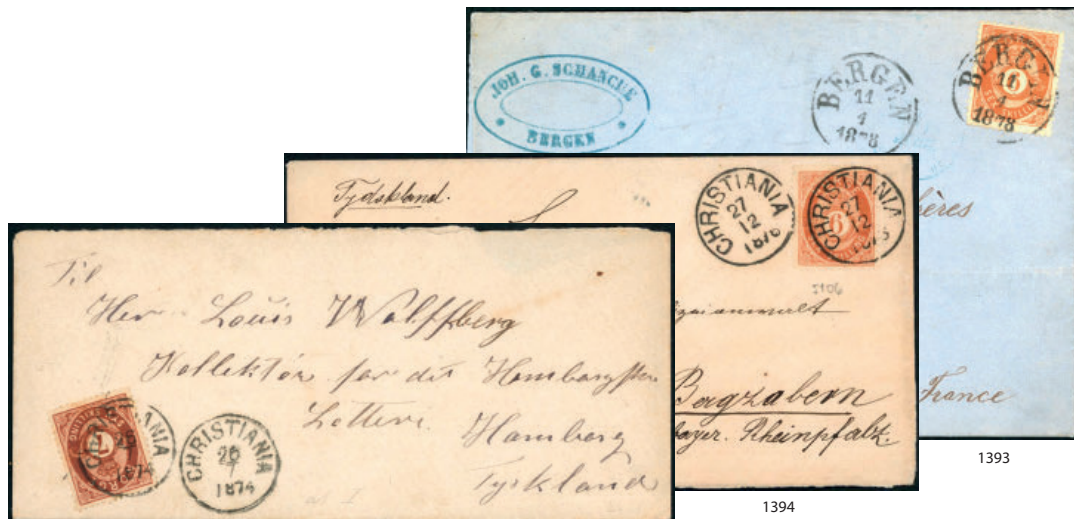 JOH. G. SCHANCHE
BERGEN
BERGEN
11
1
1878
BERGEN
11
1
1878
6
hères
France
1393
Tydskland.
CHRISTIANIA
27
12
1876
CHRISTIANIA
27
12
6
zaianwalt
Bergzabern
bayer. Rheinpfalz.
1394
Til
Herr Louis Wolffberg
Kollektør for det Hamburgske
Lotteri.
Hamburg
Tyskland
7
CHRISTIANIA
1874
CHRISTIANIA
26
7
1874